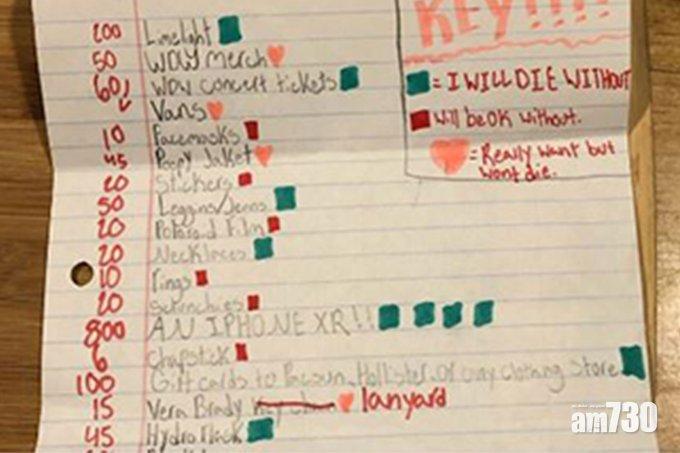 KEY!!!!
= I WILL DIE WITHOUT
Will be OK without.
= Really want but
wont die.
200 Limelight
50 WDW merch
60 WDW concert tickets
Vans
10 Facemasks
45 Poopy Jaket
20 Stickers
50 Leggins/Jeans
20 Polaroid Film
20 Necklaces
10 rings
20 Scrunchies
800 AN IPHONE XR!!
6 Chapstick
100 Gift cards to Pacsun, Hollister, Or any clothing store
15 Vera Brady key chain lanyard
45 Hydro flask
am730